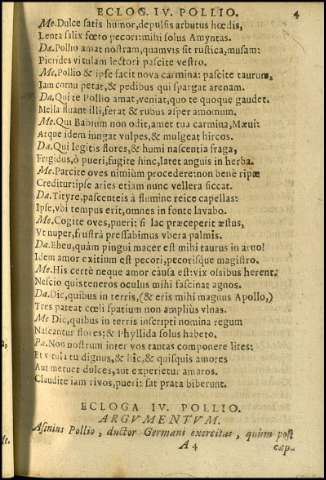 ECLOG. IV. POLLIO. 4
Me. Dulce satis humor, depulsis arbutus hœdis,
Lenta salix fœto pecori: mihi solus Amyntas.
Da. Pollio amat nostram, quamvis sit rustica, musam:
Pierides vitulam lectori pascite vestro.
Me. Pollio & ipse facit nova carmina: pascite taurum,
Iam cornu petat, & pedibus qui spargat arenam.
Da. Qui te Pollio amat, veniat, quo te quoque gaudet.
Mella fluant illi, ferat & rubus asper amomum.
Me. Qui Babium non odit, amet tua carmina, Mævi:
Atque idem iungat vulpes, & mulgeat hircos.
Da. Qui legitis flores, & humi nascentia fraga,
Frigidus, ô pueri, fugite hinc, latet anguis in herba.
Me. Parcite oves nimium procedere: non bene ripæ
Creditur: ipse aries etiam nunc vellera siccat.
Da. Tityre, pascenteis à flumine reice capellas:
Ipse, vbi tempus erit, omnes in fonte lavabo.
Me. Cogite oves, pueri: si lac præceperit æstus,
Vt nuper, frustrà pressabimus vbera palmis.
Da. Eheu, quàm pingui macer est mihi taurus in arvo!
Idem amor exitium est pecori, pecorisque magistro.
Me. His certè neque amor causa est: vix ossibus hærent.
Nescio quis teneros oculus mihi fascinat agnos.
Da. Dic, quibus in terris, (& eris mihi magnus Apollo,)
Tres pateat cœli spatium non ampliùs vlnas.
Me Dic, quibus in terris inscripti nomina regum
Nascantur flores: & Phyllida solus habeto.
Pa. Non nostrum inter vos tantas componere lites:
Et vitula tu dignus, & hic, & quisquis amores
Aut metuet dulces, aut experietur amaros.
Claudite iam rivos, pueri: sat prata biberunt.
ECLOGA IV. POLLIO.
ARGVMENTVM.
Asinius Pollio, ductor Germani exercitus, quùm post
A 4 cap-